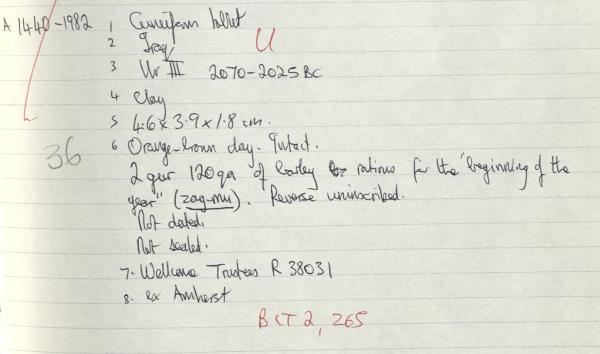 A 1440-1982 1 Cuneiform tablet
2 Iraq U
3 Ur III 2070-2025 BC
4 Clay
5 4.6 x 3.9 x 1.8 cm.
36 6 Orange-brown clay. Intact.
2 gur 120 qa of barley rations for the "beginning of the
year" (zag-mu). Reverse uninscribed.
Not dated.
Not sealed.
7. Wellcome Trustees R 38031
8. ex Amherst
BCT 2, 265